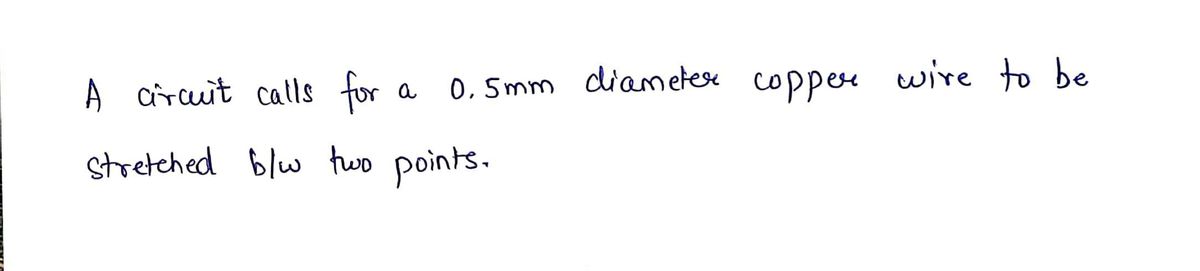 A circuit calls for a 0.5mm diameter copper wire to be
stretched b/w two points.